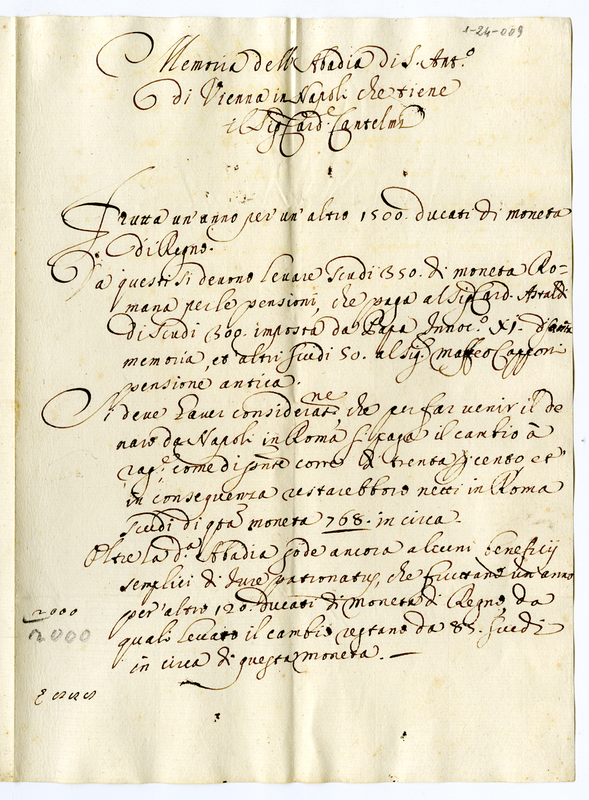 1-24-009
Memoria dell'Abadia di S. Ant.º
di Vienna in Napoli che tiene
il Sig. Card.e Cantelmi
Frutta un'anno per un'altro 1500. ducati di moneta
di Regno.
Da questi si devono levare scudi 350. di moneta Ro-
mana per le pensioni, che paga al Sig. Card. Astalli
di scudi 300. imposta da Papa Innoc.º XI. di santa
memoria, et altri scudi 50. al Sig.r Maffeo Capponi
pensione antica.
Si deve haver considerat.ne, che per far venir il de
naro da Napoli in Roma si paga il cambio à
rag.e come di p̃nte corre di trenta p cento, et
in conseguenza restarebbero netti in Roma
scudi di q̃ta moneta 768. in circa.
Oltre la d.a Abadia gode ancora alcuni beneficij
semplici di Iure patronatus, che fruttano un anno
per altro 120. Ducati di moneta di Regno, da
quali levato il cambio restano da 85. scudi
in circa di questa moneta. —
2000
2000